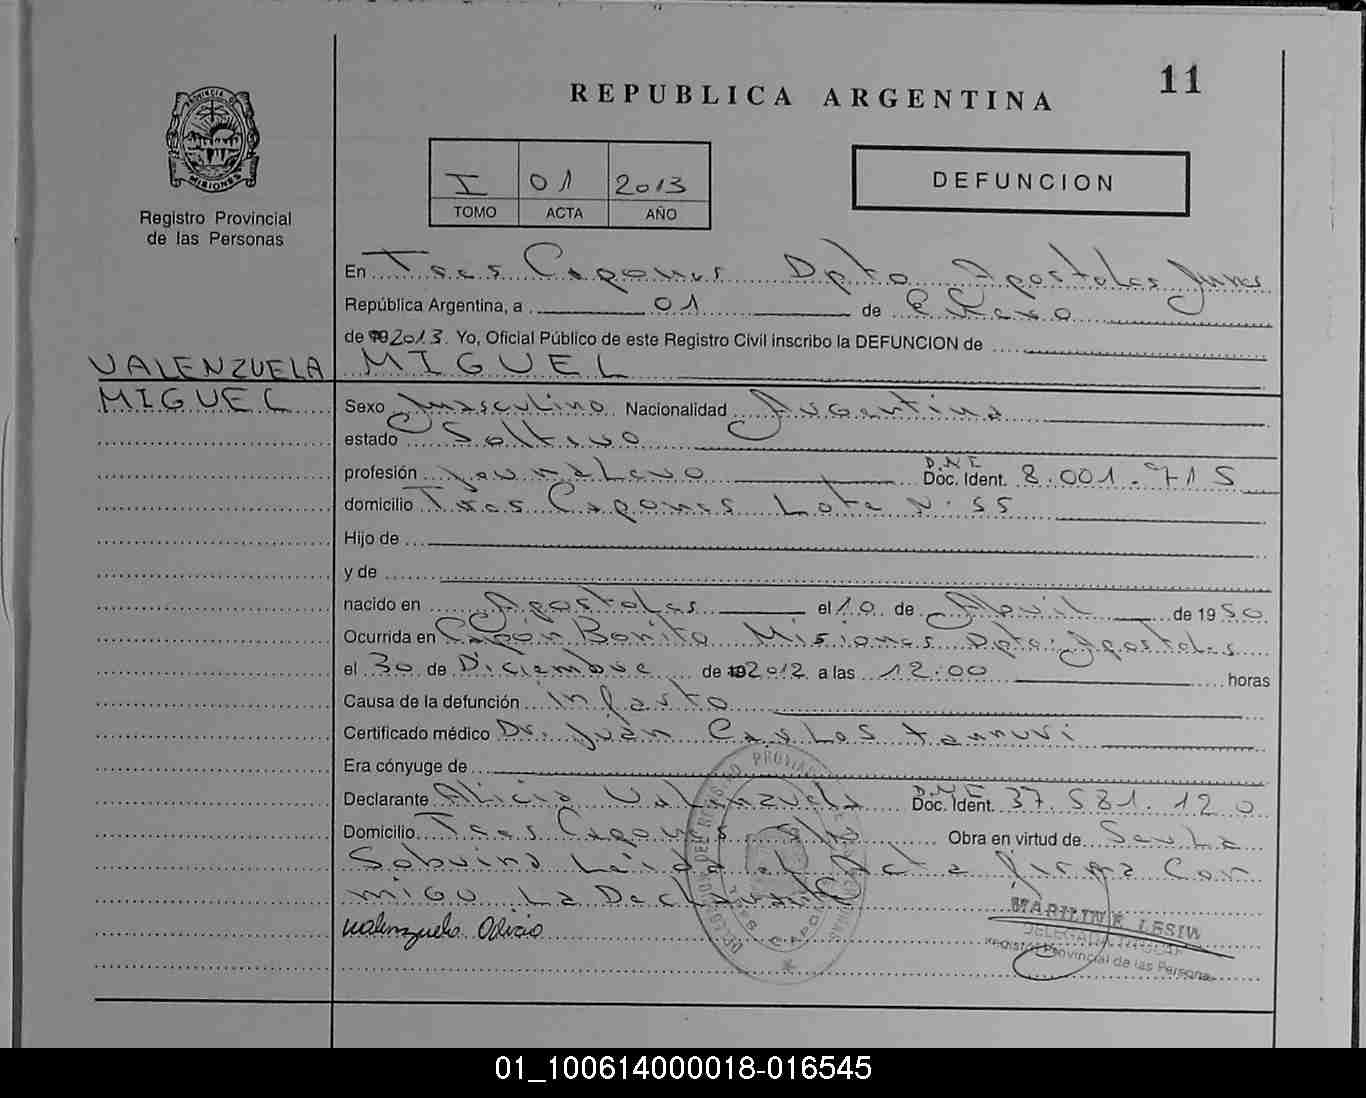 11
REPUBLICA ARGENTINA
PROVINCIA DE
MISIONES
Registro Provincial
de las Personas
I 01 2013
TOMO ACTA AÑO
DEFUNCION
En Tres Capones Dpto Apostoles
República Argentina, a 01 de Enero
de 2013. Yo, Oficial Público de este Registro Civil inscribo la DEFUNCION de
VALENZUELA
MIGUEL
MIGUEL
Sexo Masculino Nacionalidad Argentina
estado Soltero
profesión Jornalero D.N.I Doc. Ident. 8.001.715
domicilio Tres Capones Lote N° 55
Hijo de
y de
nacido en Apostoles el 10 de Abril de 1950
Ocurrida en Capón Bonito Misiones Dpto: Apostoles
el 30 de Diciembre de 2012 a las 12:00 horas
Causa de la defunción infarto
Certificado médico Dr. Juan Carlos
Era cónyuge de
Declarante Alicia Valenzuela D.N.I Doc. Ident. 37.581.120
Domicilio Tres Capones Obra en virtud de Ser la
Sobrina Leída el Acta firma Con
migo La Declarante
Valenzuela Alicia
MARILIN E. LESIW
DELEGADA TITULAR
Registro Provincial de las Personas
01_100614000018-016545